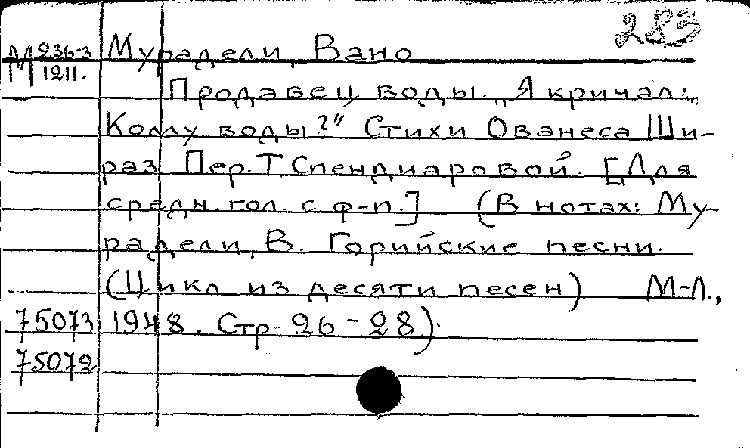 283
М 236-3 Мурадели, Вано
М 1211.
Продавец воды. „Я кричал:
Коллу воды?“ Стихи Ованеса Ши-
раз Пер. Т. Спендиаровой. [Для
средн. гол. с ф-п.] (В нотах: Му-
радели, В. Горийские песни.
(Цикл из десяти песен) М-Л.,
75073 1948. Стр. 26-28).
75072